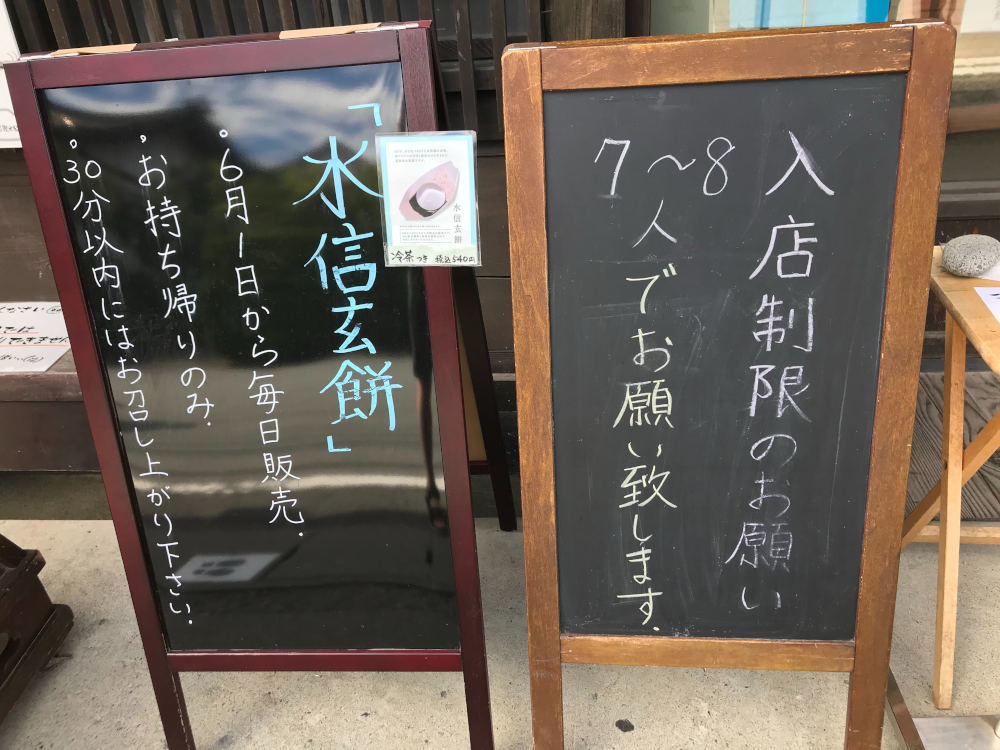 「水信玄餅」
。6月1日から毎日販売.
。お持ち帰りのみ.
。30分以内にはお召し上がり下さい.
水信玄餅
冷茶つき 税込540円
入店制限のお願い
7〜8人でお願い致します.